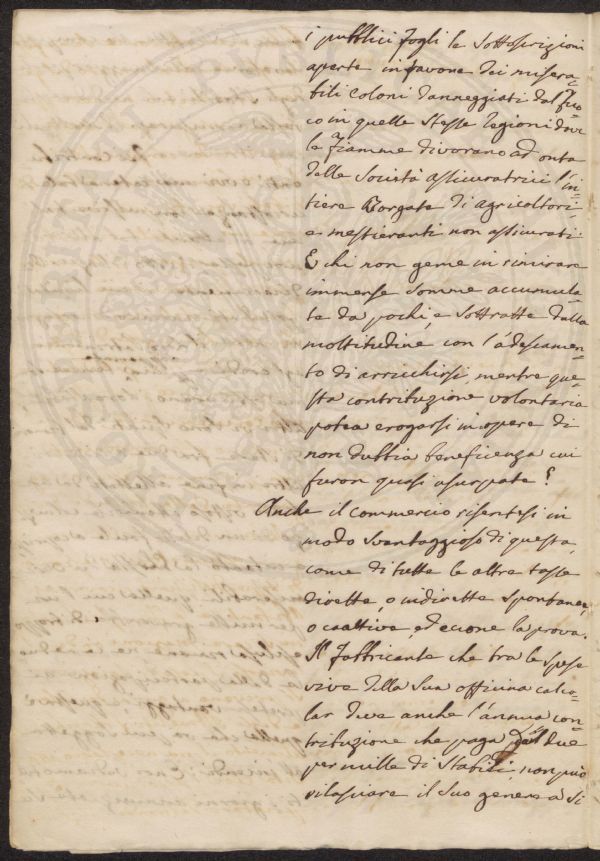 i pubblici fogli le sottoscrizioni
aperte in favore dei misera=
bili coloni danneggiati dal fuo
co in quelle stesse regioni dove
le fiamme divorano ad onta
delle Società assicuratrici l'in=
tiere Borgate di agricoltori,
e mestieranti non assicurati.
E chi non geme in rimirare
immense somme accumula=
te da pochi, e sottratte dalla
moltitudine con l'adescamen=
to di arricchirsi, mentre que=
sta contribuzione volontaria
potea erogarsi in opere di
non dubbia beneficenza cui
furon quasi usurpate?
Anche il commercio risentesi in
modo svantaggioso di questa,
come di tutte le altre tasse
dirette, o indirette spontanee,
o coattive, ed eccone la prova.
Il Fabbricante che tra le spese
vive della sua officina calco=
lar deve anche l'annua con=
tribuzione che paga del due
per mille di stabili, non può
rilasciare il suo genere a si